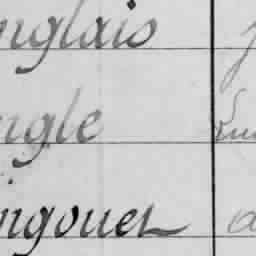 nglais
ngle
ngouer